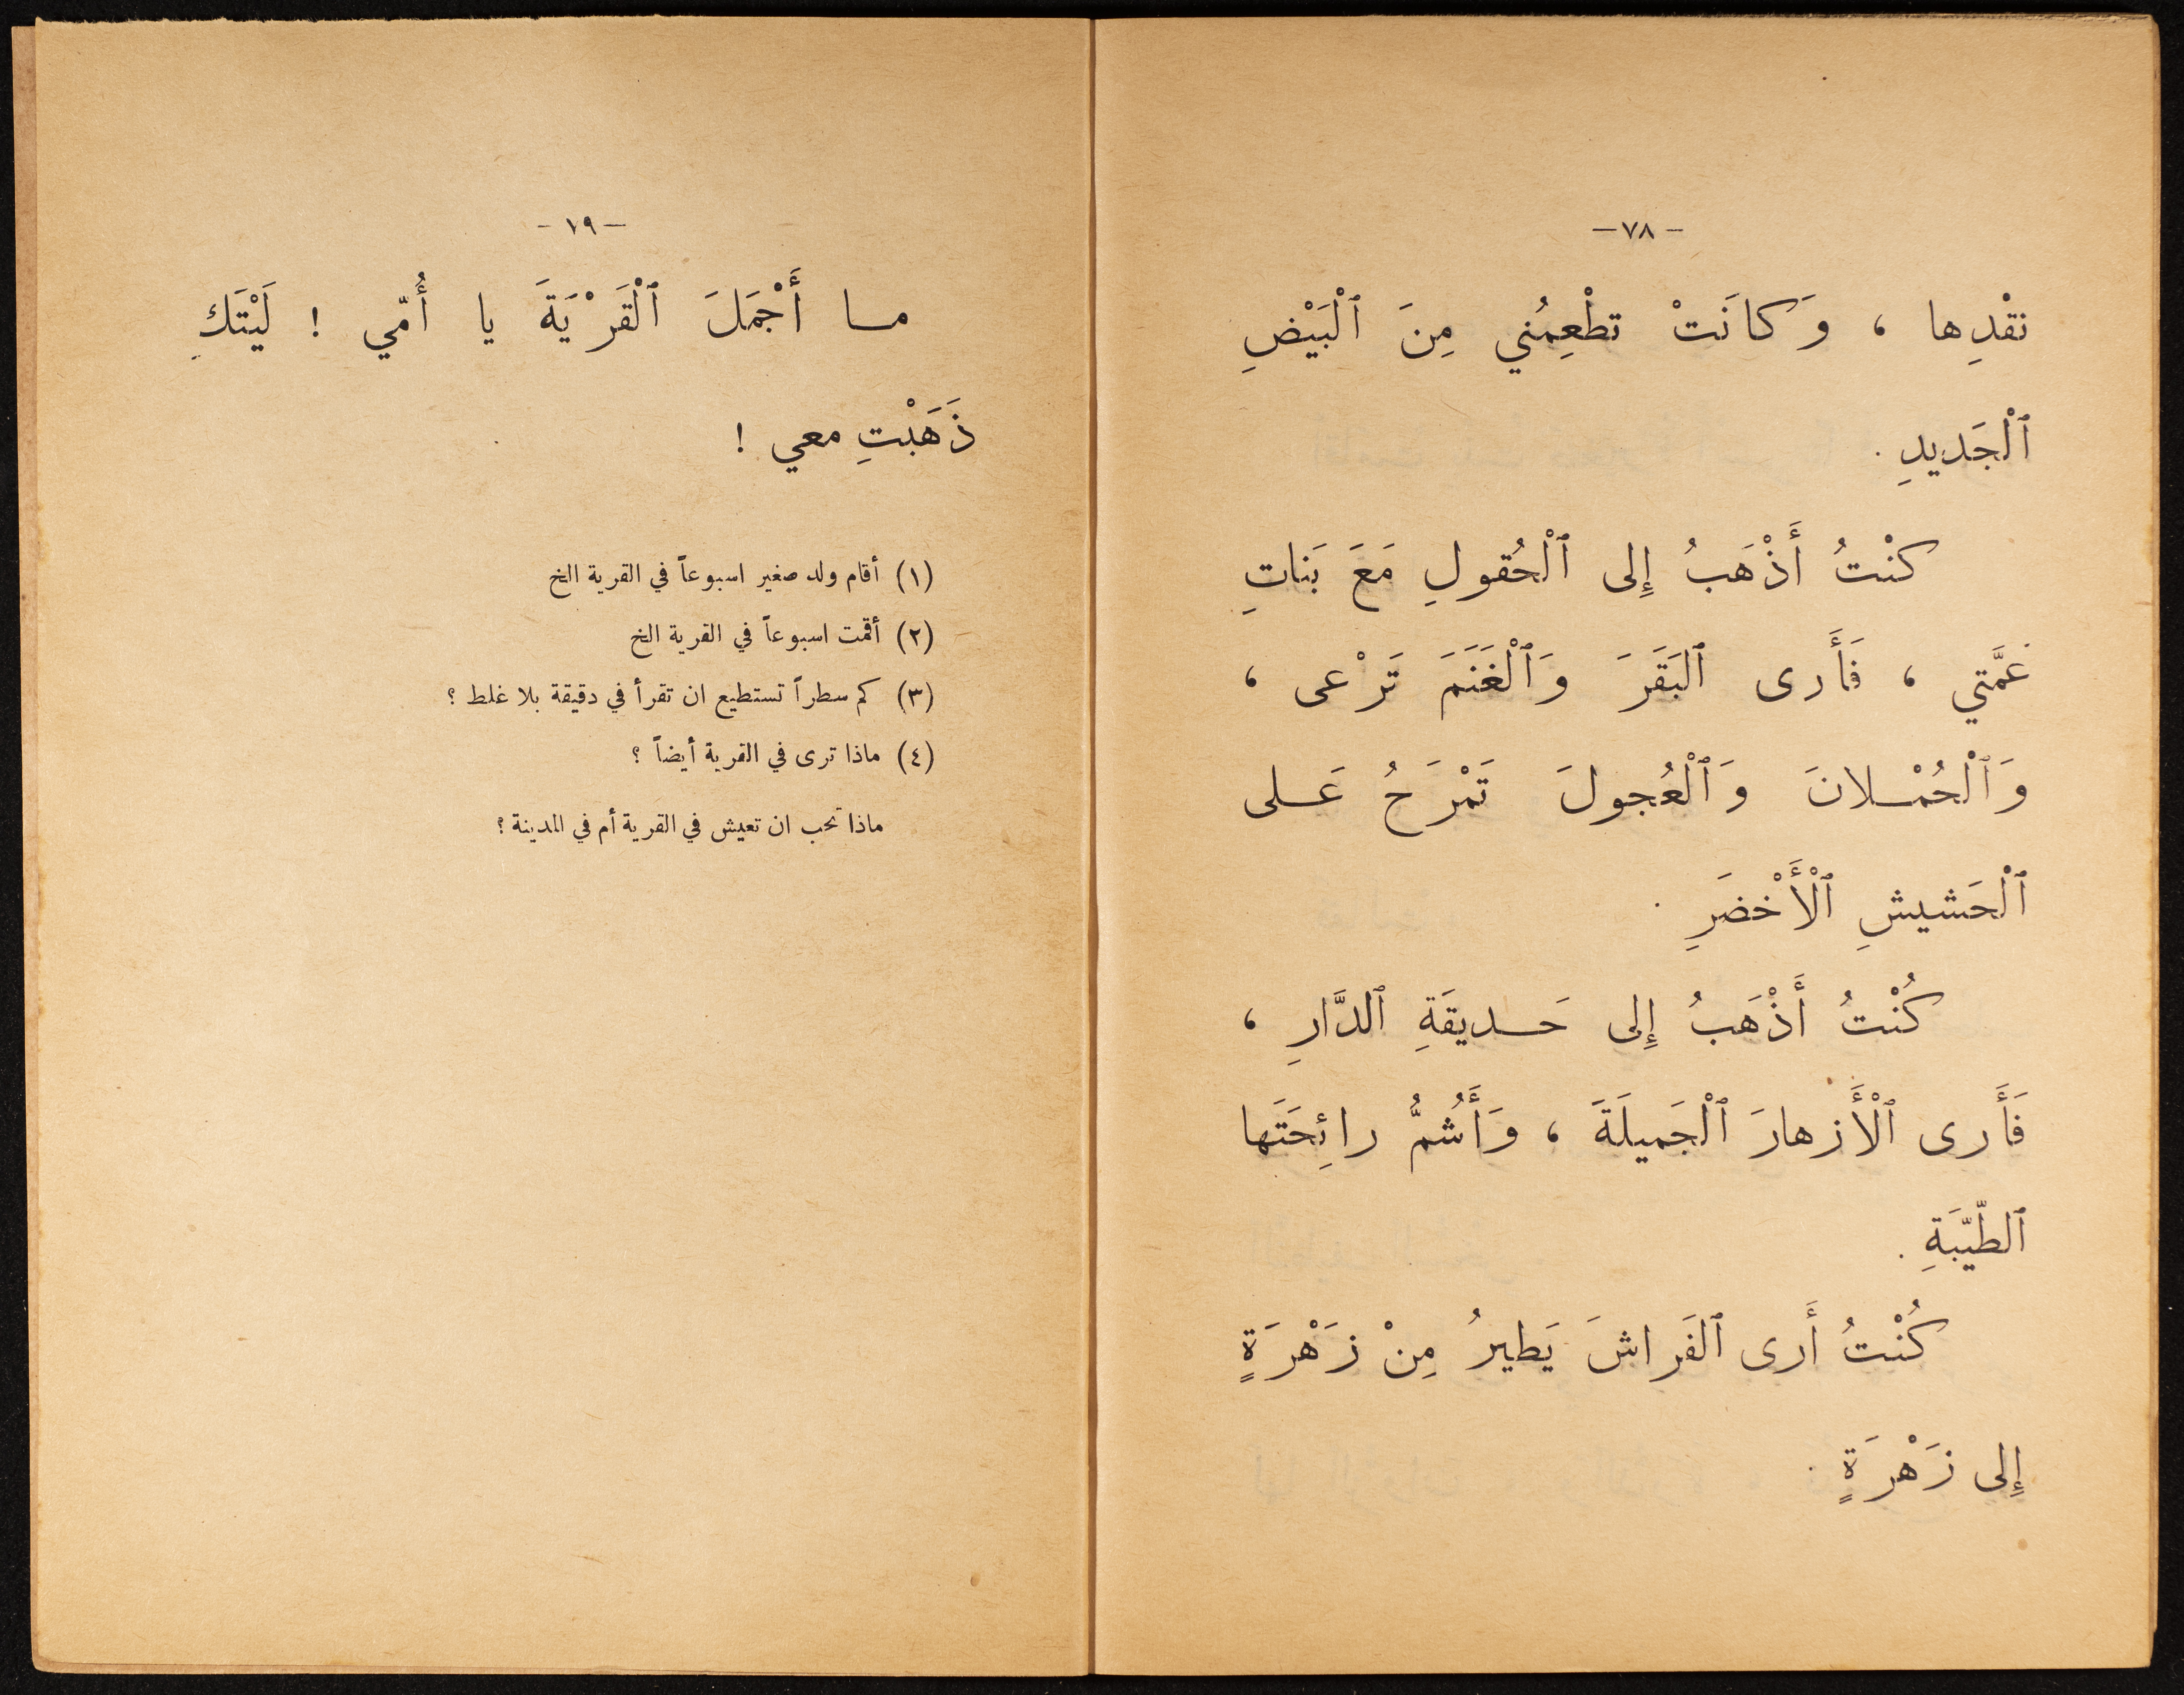 -٧٨-
نقْدِها ، وَكانَتْ تطْعِمُني مِنَ ٱلْبَيْضِ
ٱلْجَديدِ .
كنْتُ أَذْهَبُ إِلى ٱلْحُقولِ مَعَ بَناتِ
عَمَّتي ، فَأَرى ٱلبَقَرَ وَٱلْغَنَمَ تَرْعى ،
وَٱلْحُمْلانَ وَٱلْعُجولَ تَمْرَحُ عَلى
ٱلْحَشيشِ ٱلْأَخْضَرِ .
كُنْتُ أَذْهَبُ إِلى حَديقَةِ ٱلدَّارِ ،
فَأَرى ٱلْأَزهارَ ٱلْجَميلَةَ ، وَأَشُمُّ رائِحَتَها
ٱلطّيّبَةِ .
كُنْتُ أَرى ٱلفَراشَ يَطيرُ مِنْ زَهْرَةٍ
إِلى زَهْرَةٍ .
-١٩-
ما أَجْمَلَ ٱلْقَرْيَةَ يا أُمّي ! لَيْتَكِ
ذَهَبْتِ معي !
(١) أقام ولد صغير اسبوعاً في القرية الخ
(٢) أقمت اسبوعاً في القرية الخ
(٣) كم سطراً تستطيع ان تقرأ في دقيقة بلا غلط ؟
(٤) ماذا ترى في القرية أيضاً ؟
ماذا تحب ان تعيش في القرية أم في المدينة ؟